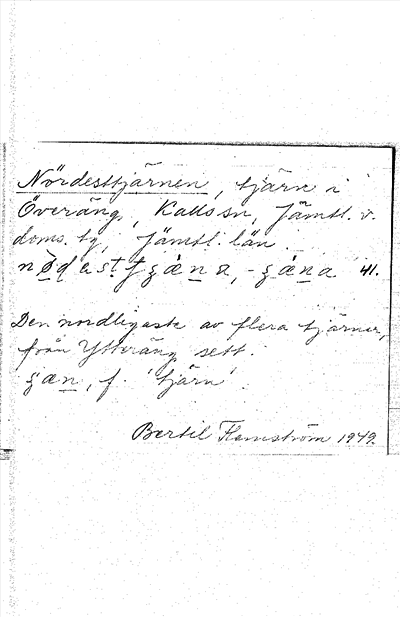 Nördesttjärnen, tjärn i
Överäng, Kalls sn, Jämtl. v.
doms. tg, Jämtl. län.
Den nordligaste av flera tjärnar,
från Ytteräng sett.
f. 'tjärn'.
Bertil Flemström 1949.